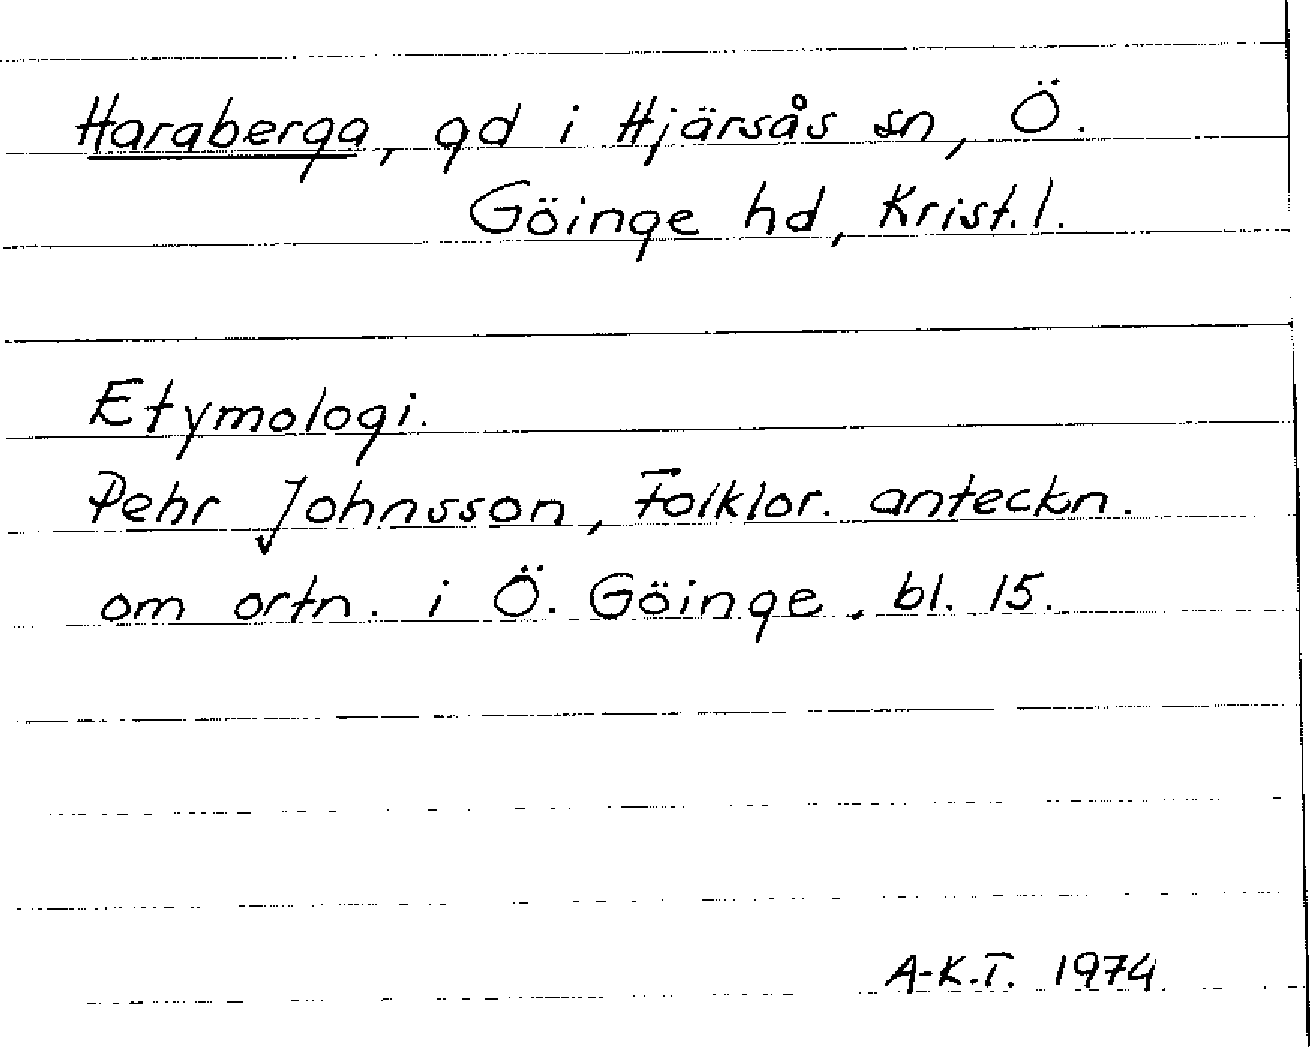 Haraberga, gd i Hjärsås sn, Ö.
Göinge hd, Krist. l.
Etymologi.
Pehr Johnsson, Folklor. anteckn.
om ortn. i Ö. Göinge, bl. 15.
A-K.T. 1974